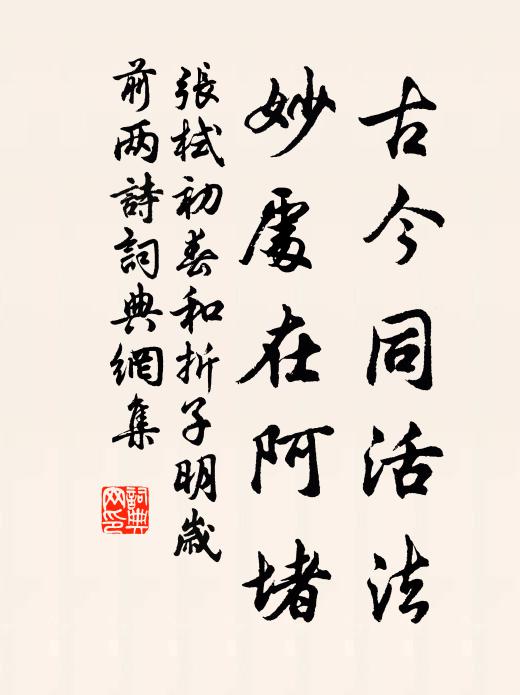 古今同活法
妙處在阿堵
張栻初春和折子明歲
前两詩詞典網集
詞典
网